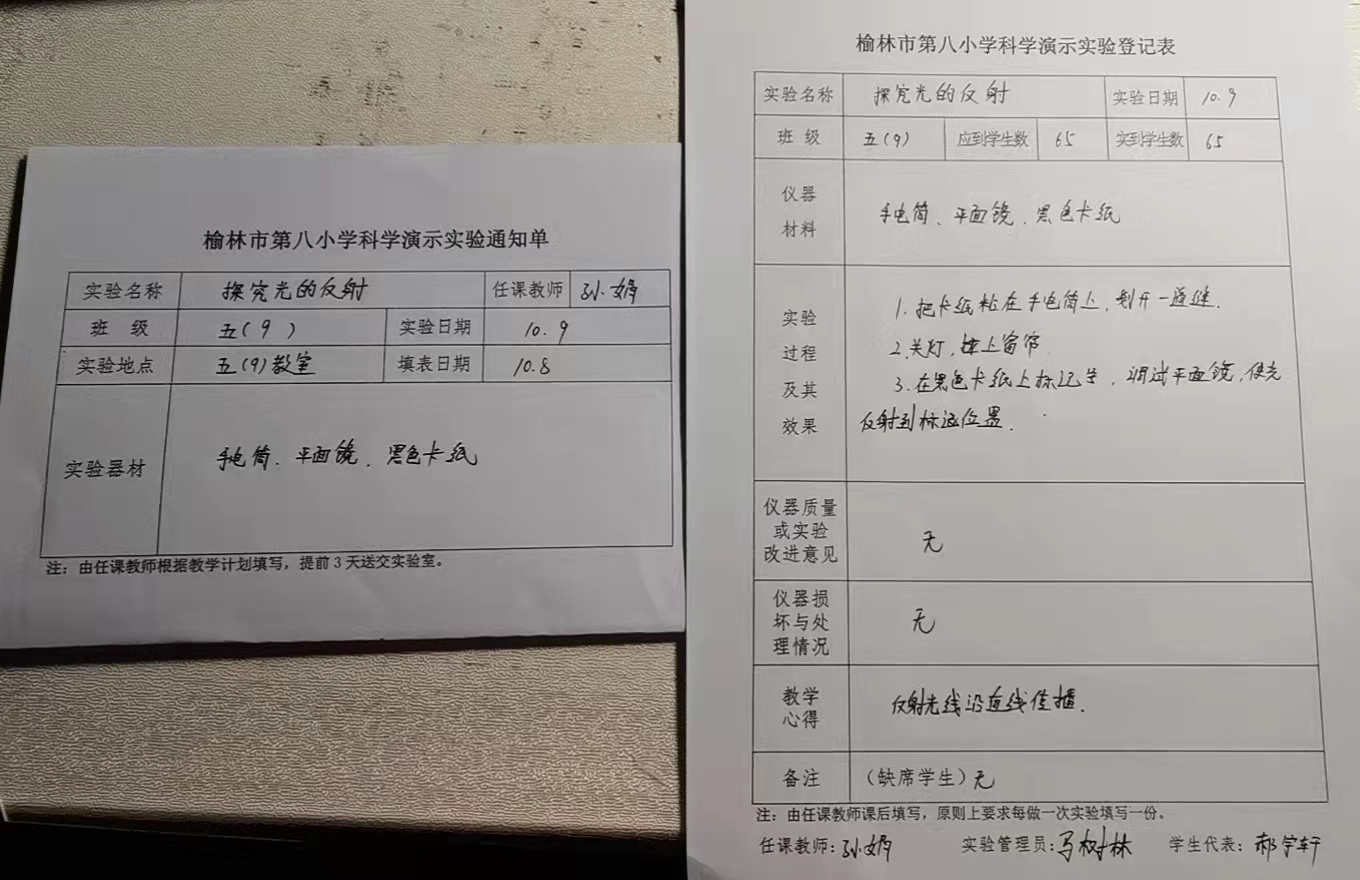 榆林市第八小学科学演示实验通知单
实验名称 探究光的反射 任课教师 孙娟
班 级 五(9) 实验日期 10.9
实验地点 五(9)教室 填表日期 10.8
实验器材 手电筒、平面镜、黑色卡纸
注：由任课教师根据教学计划填写，提前3天送交实验室。
榆林市第八小学科学演示实验登记表
实验名称 探究光的反射 实验日期 10.9
班 级 五(9) 应到学生数 65 实到学生数 65
仪器材料 手电筒、平面镜、黑色卡纸
实验过程及其效果
1.把卡纸粘在手电筒上,划开一道缝.
2.关灯,拉上窗帘
3.在黑色卡纸上标记,调试平面镜,使光
反射到标记位置.
仪器质量或实验改进意见 无
仪器损坏与处理情况 无
教学心得 反射光线沿直线传播.
备注 (缺席学生)无
注：由任课教师课后填写，原则上要求每做一次实验填写一份。
任课教师:孙娟 实验管理员:马树林 学生代表:郝宇轩